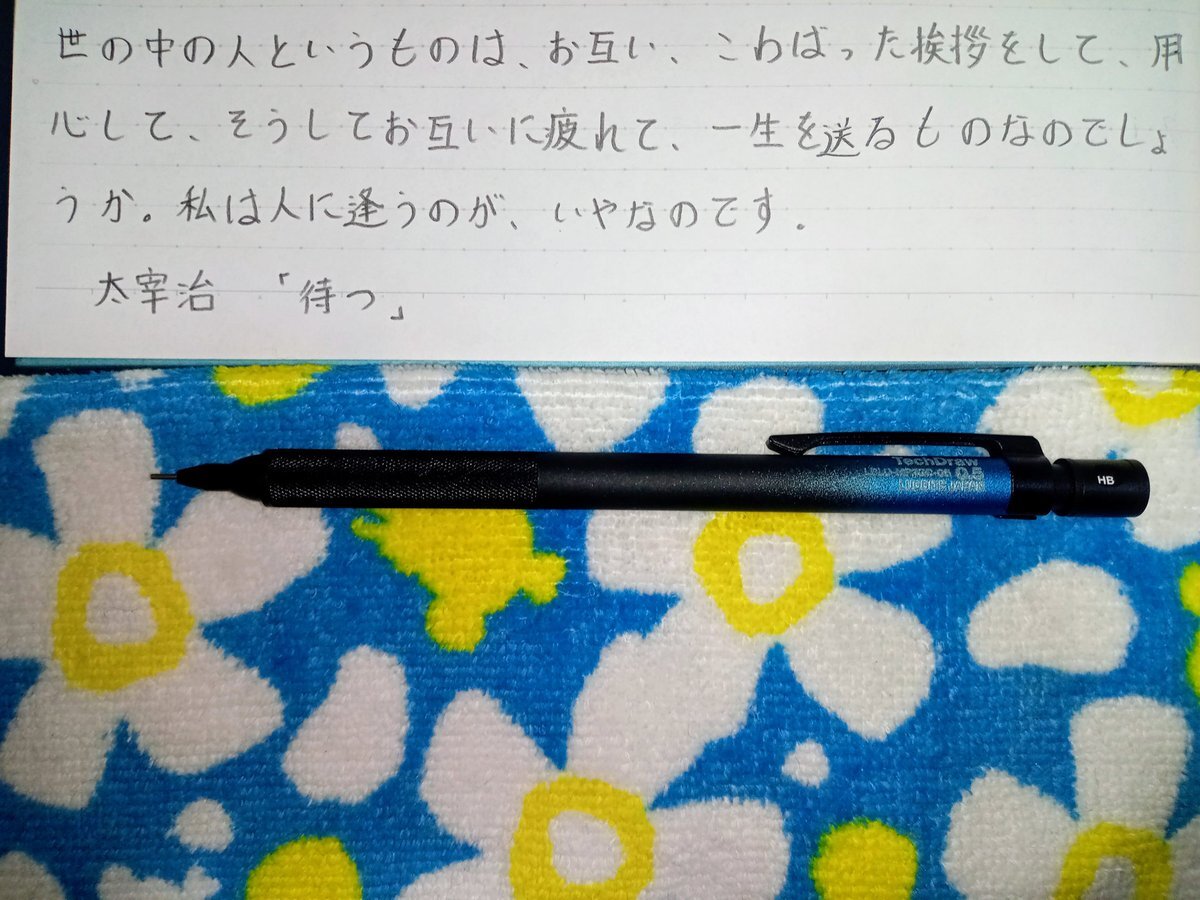 世の中の人というものは、お互い、こわばった挨拶をして、用
心して、そうしてお互いに疲れて、一生を送るものなのでしょ
うか。私は人に逢うのが、いやなのです。
太宰治 「待つ」
TechDraw
0.5
HB